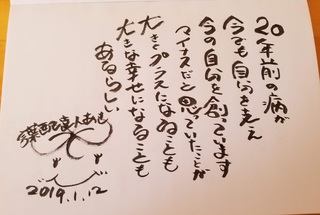 20年前の病が
今でも自分を支え
今の自分を創っています
マイナスだと思っていたことが
大きくプラスになることも
大きな幸せになることも
あるらしい
2019.1.12